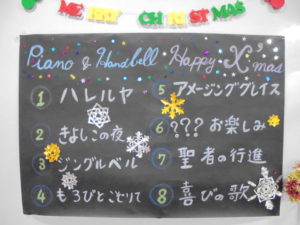 MERRY CHRISTMAS
Piano & Handbell Happy X'mas
① ハレルヤ
② きよしこの夜
③ ジングルベル
④ もろびとこぞりて
⑤ アメージンググレイス
⑥ ??? お楽しみ
⑦ 聖者の行進
⑧ 喜びの歌